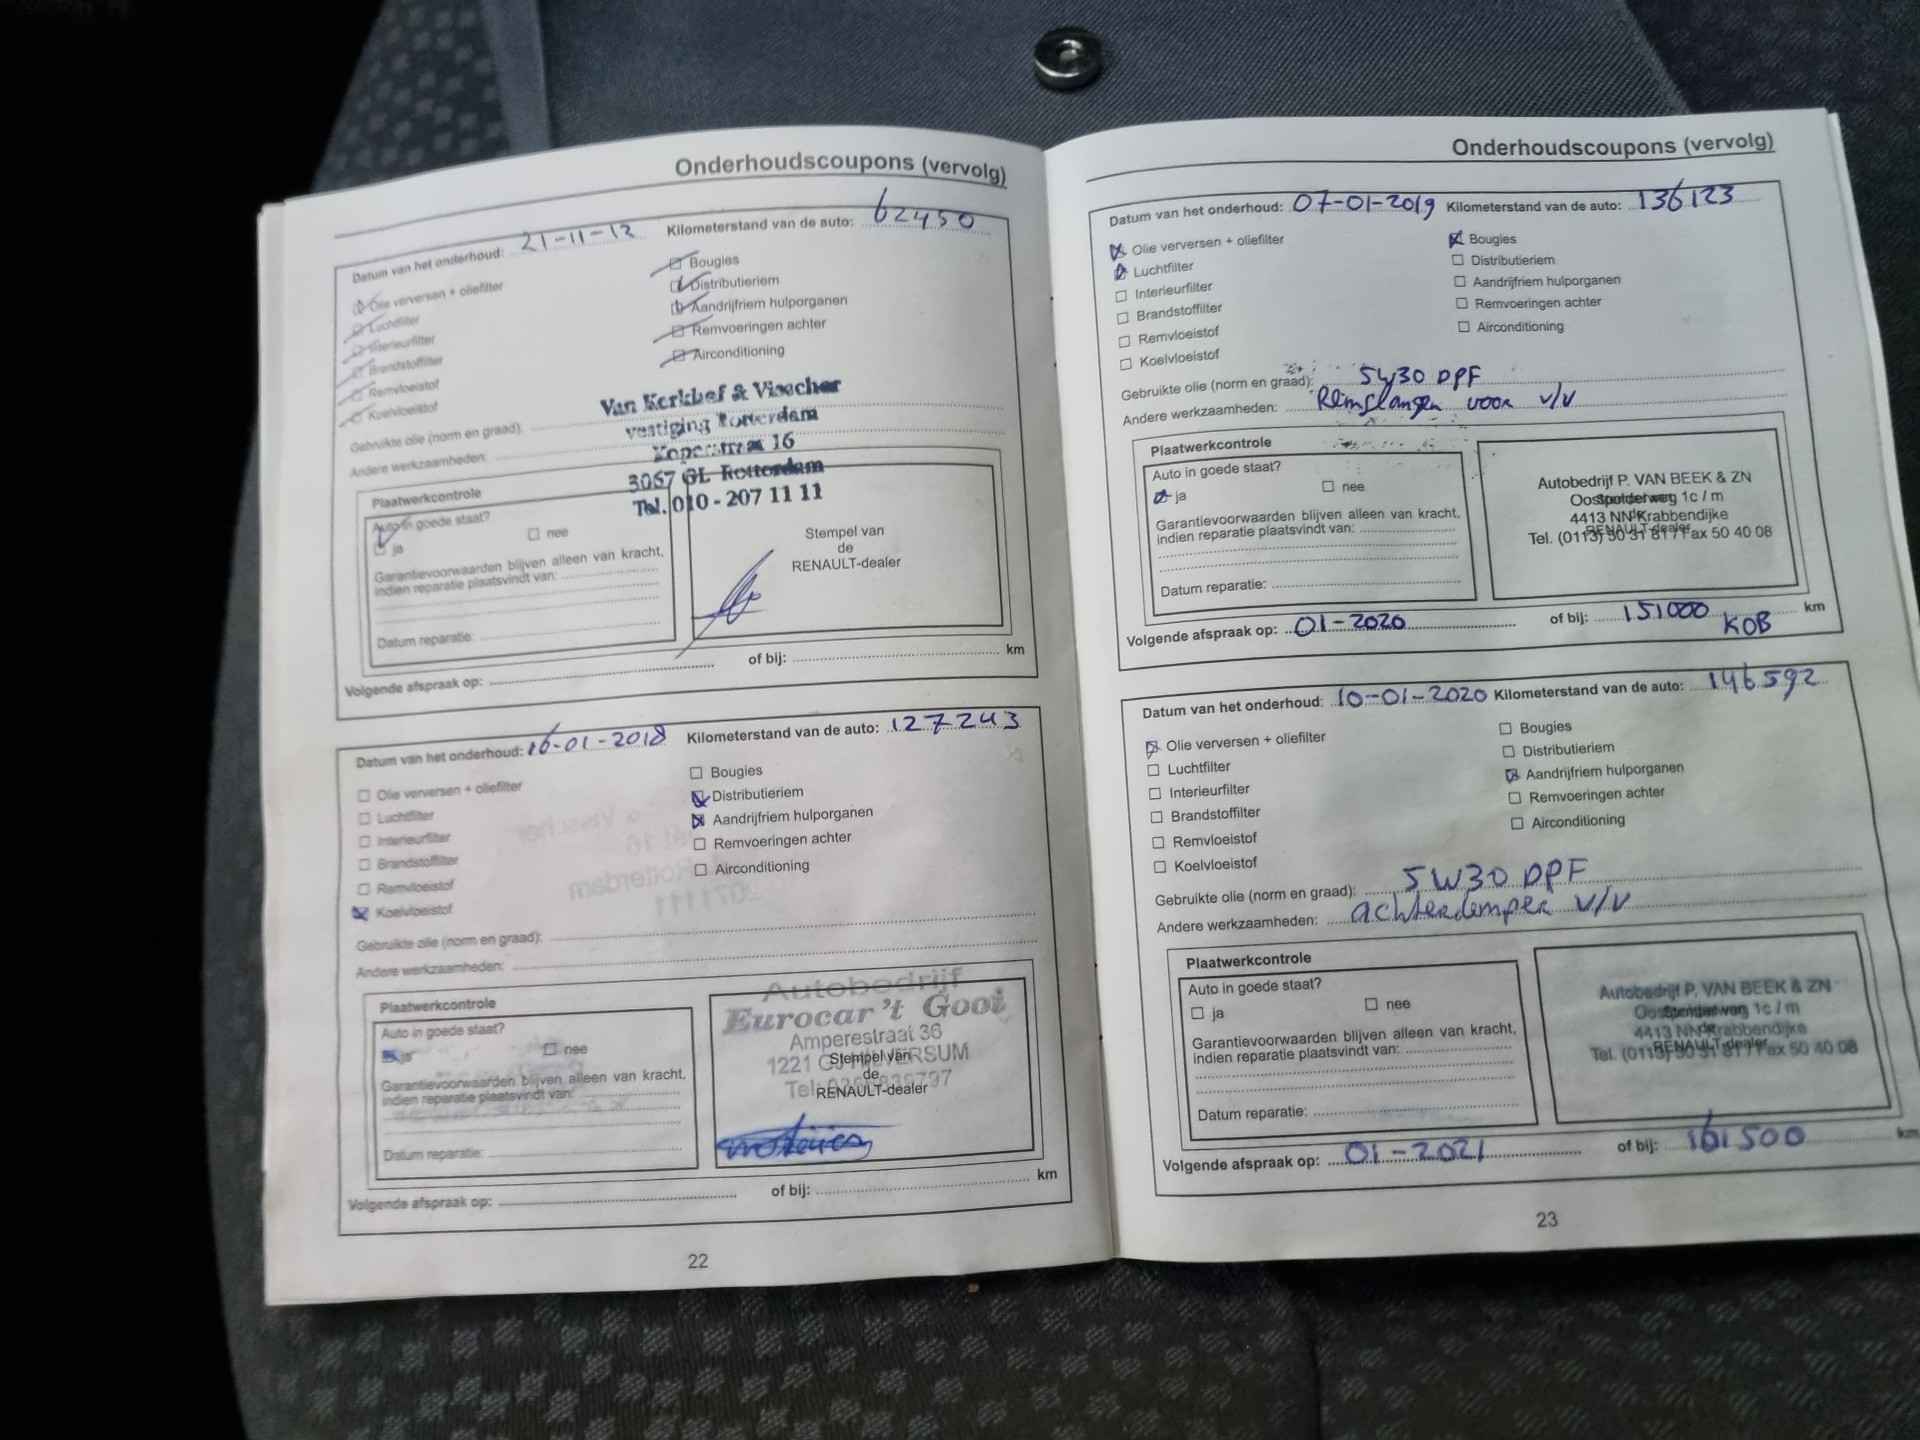 Onderhoudscoupons (vervolg)
Datum van het onderhoud: 21-11-12 Kilometerstand van de auto: 62450
Olie verversen + oliefilter
Luchtfilter
Interieurfilter
Brandstoffilter
Remvloeistof
Koelvloeistof
Bougies
Distributieriem
Aandrijfriem hulporganen
Remvoeringen achter
Airconditioning
Gebruikte olie (norm en graad):
Andere werkzaamheden:
Van Kerkhof & Visscher
vestiging Rotterdam
Koperstraat 16
3067 GL Rotterdam
Tel. 010 - 207 11 11
Plaatwerkcontrole
Auto in goede staat?
ja nee
Garantievoorwaarden blijven alleen van kracht,
indien reparatie plaatsvindt van:
Datum reparatie:
Stempel van
de
RENAULT-dealer
Volgende afspraak op: of bij: km
Datum van het onderhoud: 16-01-2018 Kilometerstand van de auto: 127243
Olie verversen + oliefilter
Luchtfilter
Interieurfilter
Brandstoffilter
Remvloeistof
Koelvloeistof
Bougies
Distributieriem
Aandrijfriem hulporganen
Remvoeringen achter
Airconditioning
Gebruikte olie (norm en graad):
Andere werkzaamheden:
Plaatwerkcontrole
Auto in goede staat?
ja nee
Garantievoorwaarden blijven alleen van kracht,
indien reparatie plaatsvindt van:
Datum reparatie:
Autobedrijf
Eurocar 't Gooi
Amperestraat 36
1221 HILVERSUM
Stempel van
de
RENAULT-dealer
Volgende afspraak op: of bij: km
22
Onderhoudscoupons (vervolg)
Datum van het onderhoud: 07-01-2019 Kilometerstand van de auto: 136123
Olie verversen + oliefilter
Luchtfilter
Interieurfilter
Brandstoffilter
Remvloeistof
Koelvloeistof
Bougies
Distributieriem
Aandrijfriem hulporganen
Remvoeringen achter
Airconditioning
Gebruikte olie (norm en graad): 5W30 DPF
Andere werkzaamheden: Remslangen voor v/v
Plaatwerkcontrole
Auto in goede staat?
ja nee
Garantievoorwaarden blijven alleen van kracht,
indien reparatie plaatsvindt van:
Datum reparatie:
Autobedrijf P. VAN BEEK & ZN
Oostpolderweg 1c / m
4413 NN Krabbendijke
Tel. (0113) 50 31 81 / Fax 50 40 08
Stempel van
de
RENAULT-dealer
Volgende afspraak op: 01-2020 of bij: 151000 km
KOB
Datum van het onderhoud: 10-01-2020 Kilometerstand van de auto: 146592
Olie verversen + oliefilter
Luchtfilter
Interieurfilter
Brandstoffilter
Remvloeistof
Koelvloeistof
Bougies
Distributieriem
Aandrijfriem hulporganen
Remvoeringen achter
Airconditioning
Gebruikte olie (norm en graad): 5W30 DPF
Andere werkzaamheden: achterdemper v/v
Plaatwerkcontrole
Auto in goede staat?
ja nee
Garantievoorwaarden blijven alleen van kracht,
indien reparatie plaatsvindt van:
Datum reparatie:
Autobedrijf P. VAN BEEK & ZN
Oostpolderweg 1c / m
4413 NN Krabbendijke
Tel. (0113) 50 31 81 / Fax 50 40 08
Stempel van
de
RENAULT-dealer
Volgende afspraak op: 01-2021 of bij: 161500 km
23